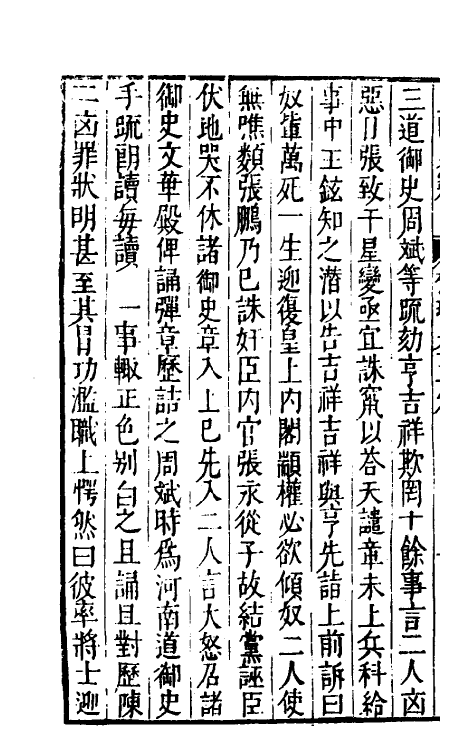 三道御史周斌等疏劾亨吉祥欺罔十餘事言二人凶
惡日張致干星變亟宜誅竄以荅天譴章未上兵科給
事中王鉉知之潜以告吉祥吉祥與亨先詣上前訴曰
奴輩萬死一生迎復皇上內閣顓權必欲傾奴二人使
無噍類張鵬乃已誅奸臣內官張永從子故結黨誣臣
伏地哭不休諸御史章入上已先入二人言大怒召諸
御史文華殿俾誦彈章歷詰之周斌時爲河南道御史
手疏朗讀每讀一事輙正色别白之且誦且對歷陳
二凶罪狀明甚至其冒功濫職上愕然曰彼率將士迎